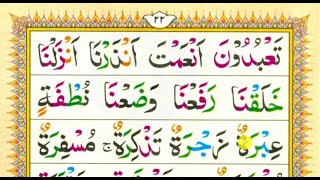 ٢٢
تَعْبُدُوْنَ اَنْعَمْتَ اَنْذَرْنَا اَنْزَلْنَا
خَلَقْنَا رَفَعْنَا وَضَعْنَا نُطْفَةٍ
عِبْرَةٌ زَجْرَةٌ تَذْكِرَةٌ ج مُسْفِرَةٌ